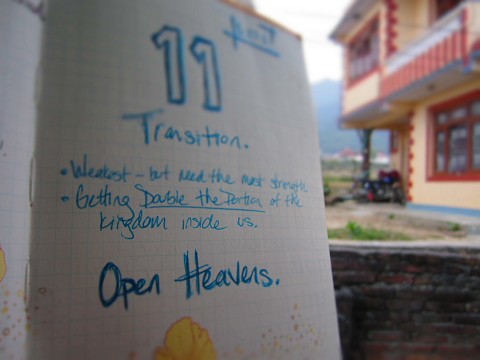 11
Transition.
• Weakest - but need the most strength
• Getting Double the Portion of the
kingdom inside us.
Open Heavens.